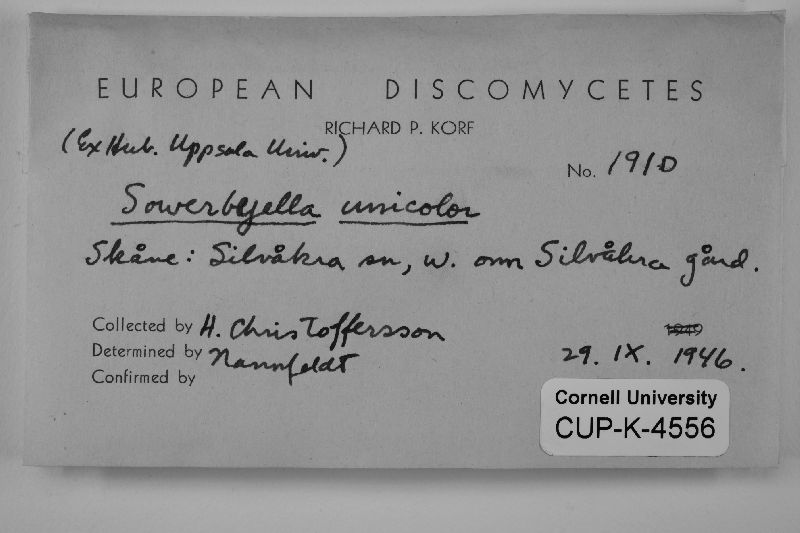 EUROPEAN DISCOMYCETES
RICHARD P. KORF
(Ex Hub. Uppsala Univ.)
No. 191D
Sowerbyella unicolor
Skåne: Silvåkra sn, w. om Silvåkra gård.
Collected by H. Christoffersson
1949
Determined by Nannfeldt
29. IX. 1946.
Confirmed by
Cornell University
CUP-K-4556